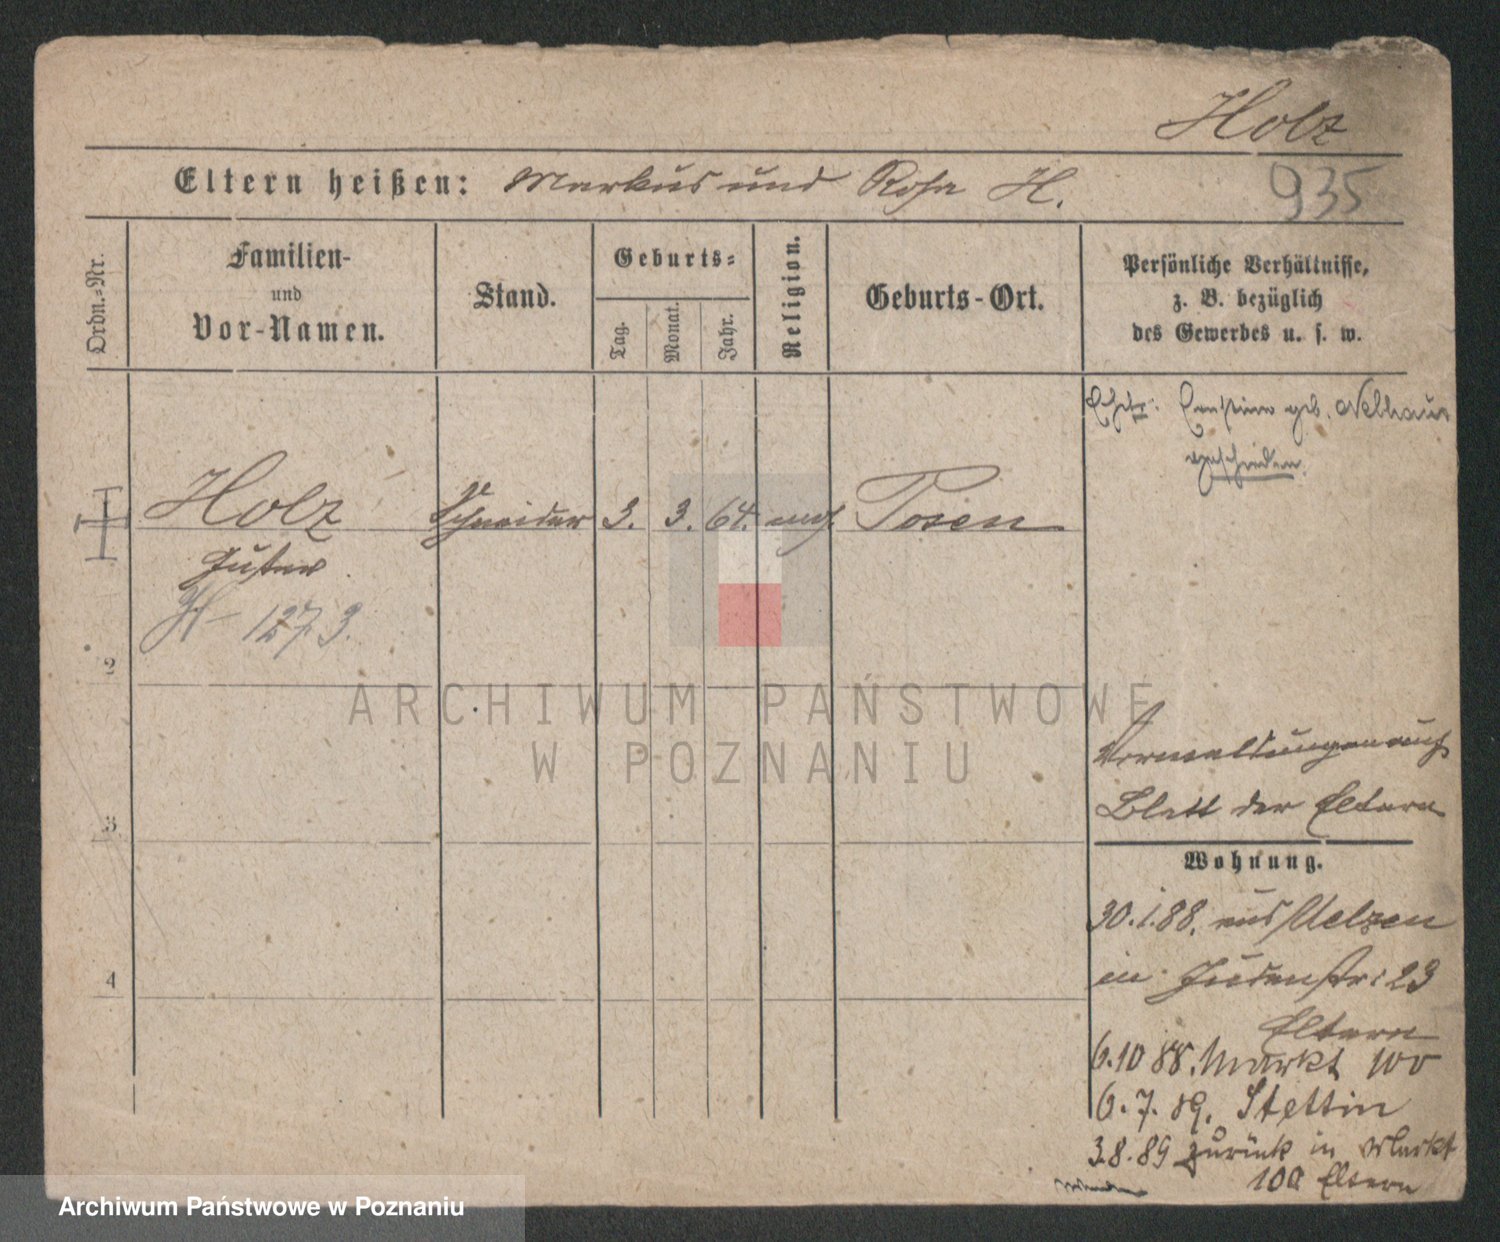 Holz
Eltern heißen: Markus und Rosa H.
935
Ordn.-Nr.
Familien-
und
Vor-Namen.
Stand.
Geburts-
Tag.
Monat.
Jahr.
Religion.
Geburts-Ort.
Persönliche Verhältnisse,
z. B. bezüglich
des Gewerbes u. s. w.
geb. Nelhaus
geschieden.
1
Holz Schneider 3. 3. 64. mos. Posen
Gustav
H- 1273.
2
ARCHIWUM PAŃSTWOWE
W POZNANIU
auf
Blatt der Eltern
3
Wohnung.
30.1.88. aus Uelzen
in Judenstr: 23
4
Eltern
6.10 88. Markt 100
6.7.89. Stettin
3.8.89 zurück in Markt
100 Eltern
Archiwum Państwowe w Poznaniu